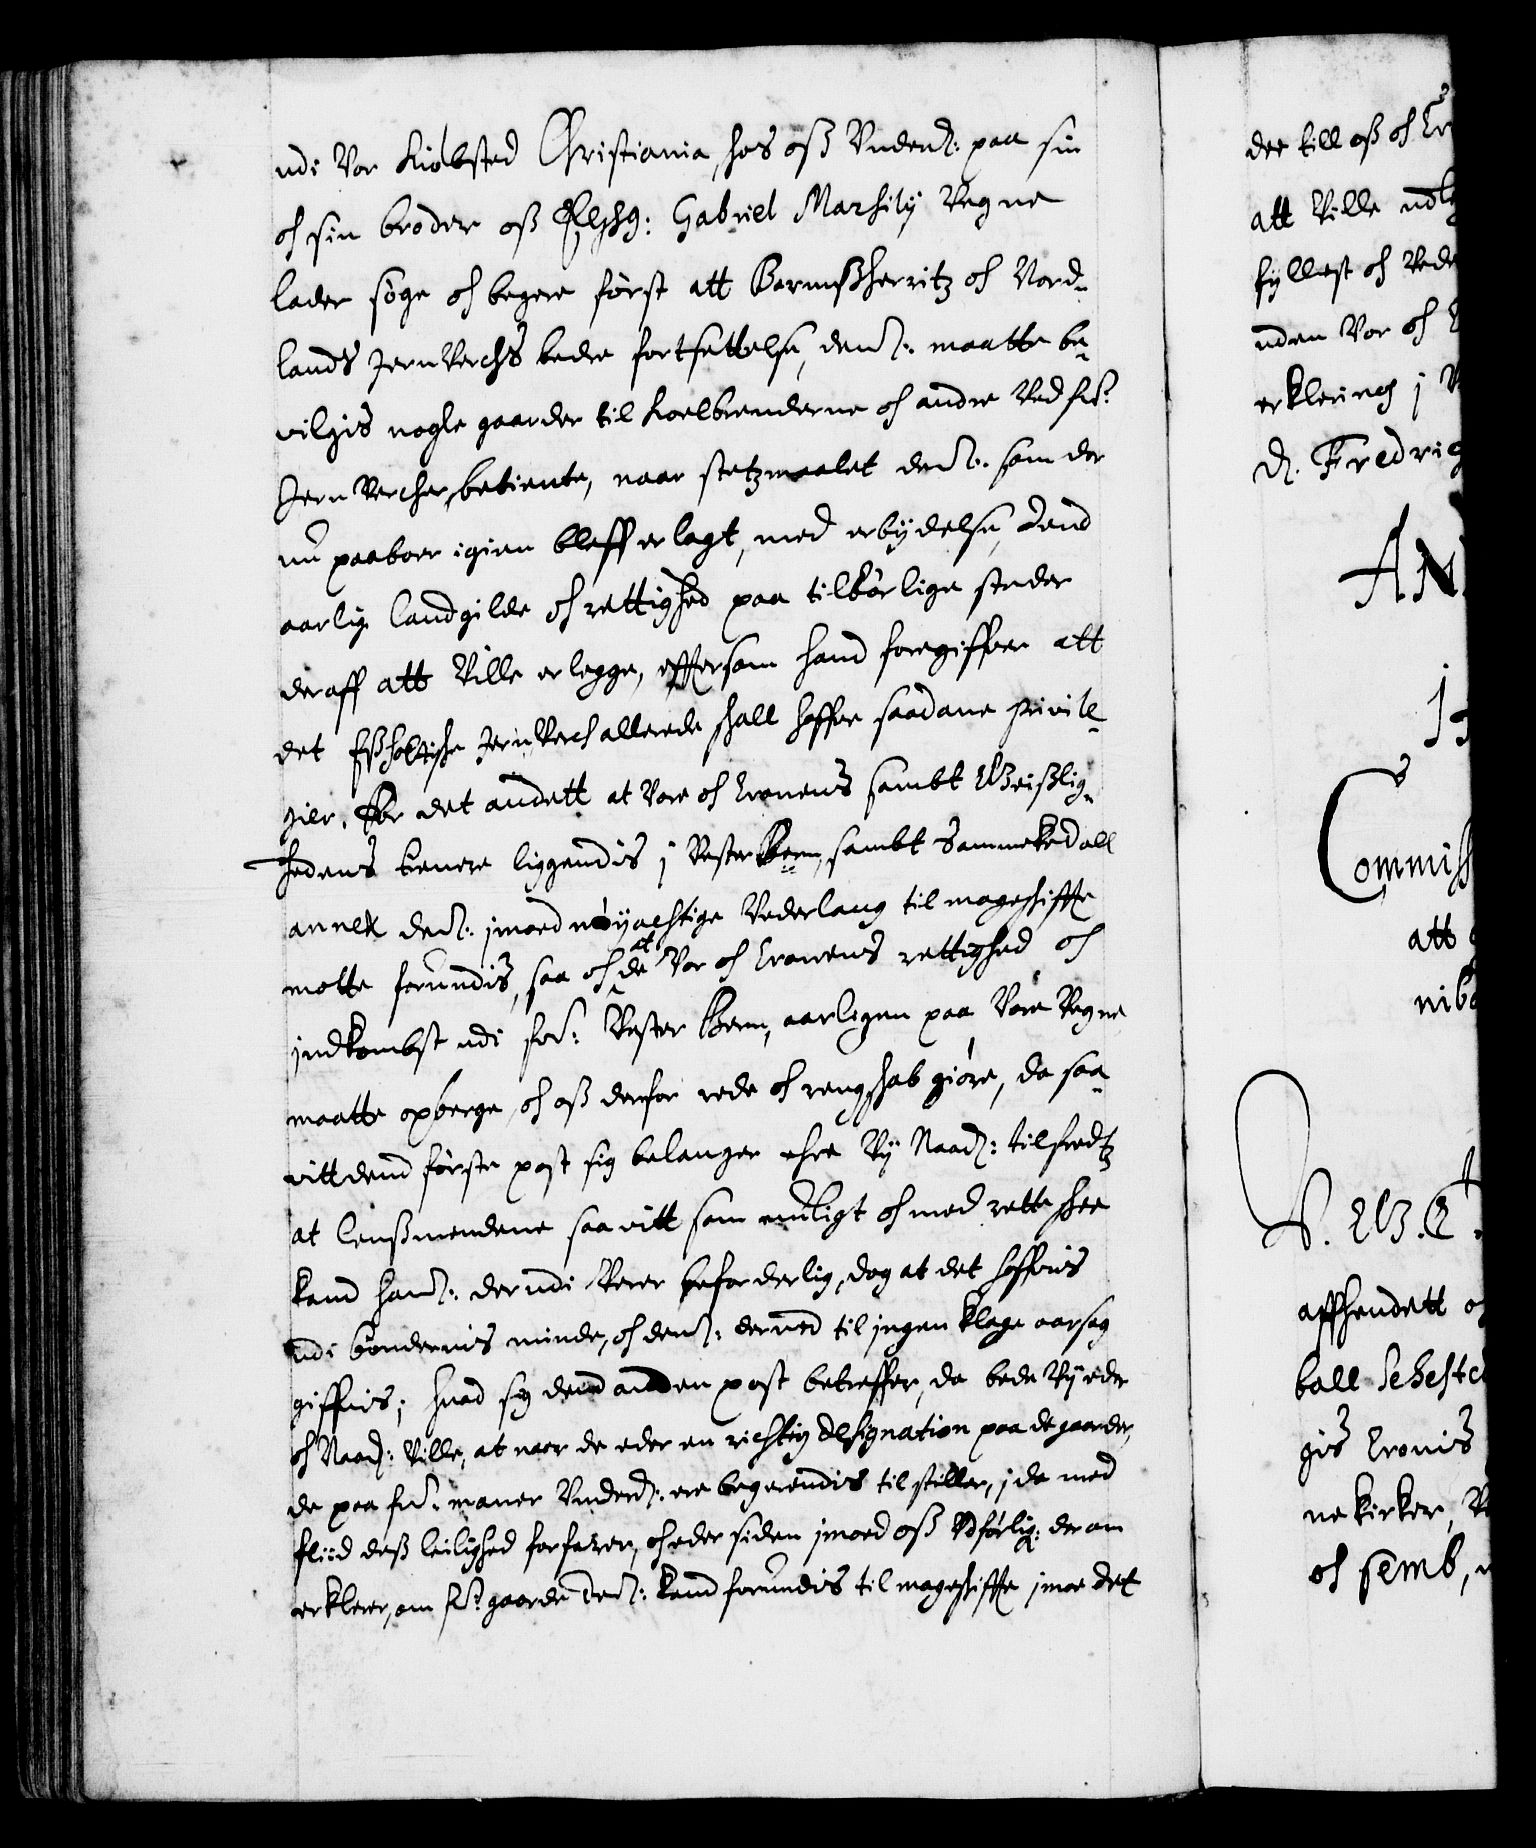 udi Vor Kiøbsted Christiania, hos oss Underd: paa sin
oc sin broder oss Elshg: Gabriel Marsilij Vegne
lader søge oc begere først att Berumssherritz oc Nord-
lands Jern Verchs bedre fortsettelse, dend: maatte be-
vilgis nogle gaarder til Koelbrenderne oc andre Ved for:
Jern Vercher betiente, naar stetzmaalet dend: som der
nu paaboer igien bleff erlagt, med erbydelse, dend
aarlig landgilde oc rettighed paa tilbørlige steder
deraff att Ville erlegge, effersom hand foregiffver att
det Jern Verch allerede skall haffve saadane privile-
gier. For det andett at Vore oc Cronens sambt Geistlig-
hedens tiener liggendis j Vester Berum, sambt Sammekedall
annex dend: jmod nøyachtige Vederlaug til mageskiffte
motte forundis, saa oc at de Vor oc Cronens rettighed oc
jndkombst udi for: Vester Berum, aarligen paa Vore Vegne
maatte opberge, oc oss derfor rede oc rengskab giøre, da saa
vitt dend første post sig belanger ehre Vy Naad: tilfredtz
at lenssmendene saavitt som muligt oc med rette skee
kand hand: derudi Verer beforderlig, dog at det haffvis
udi bøndernis minde, oc dend: dermed til jngen klage aarsag
giffvis; huad sig dend anden post betreffer, da bede Vy eder
oc Naad: Ville, at naar de eder en richtig designation paa de gaarder,
de paa for: maner Underd: ere begerendis tilstiller, j da med
fliid dess leilighed forfarer, oc eder siden jmod oss Udførlig: derom
erklerer, om for: gaarde dend: kand forundis til mageskiffte jmod det
der till oss oc Cro
att Ville udle
fyllest oc Vede
uden Vor oc
erklering j V
d. Fredrig
AN
Commiss
att
affhendett o
ball Sehested
gis Cronis
ne kirker, V
oc semb,